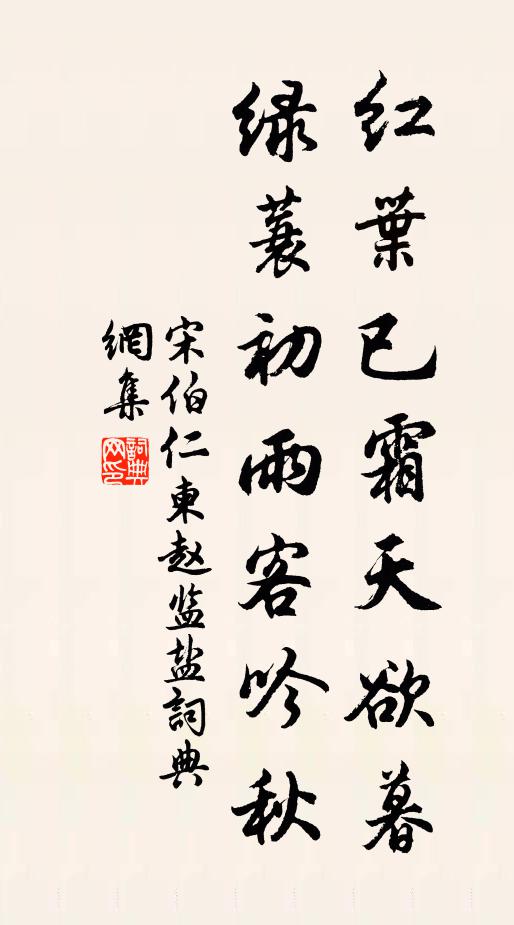 红葉已霜天欲暮
绿蓑初雨客吟秋
宋伯仁東赵监盐詞典
網集
詞典网印